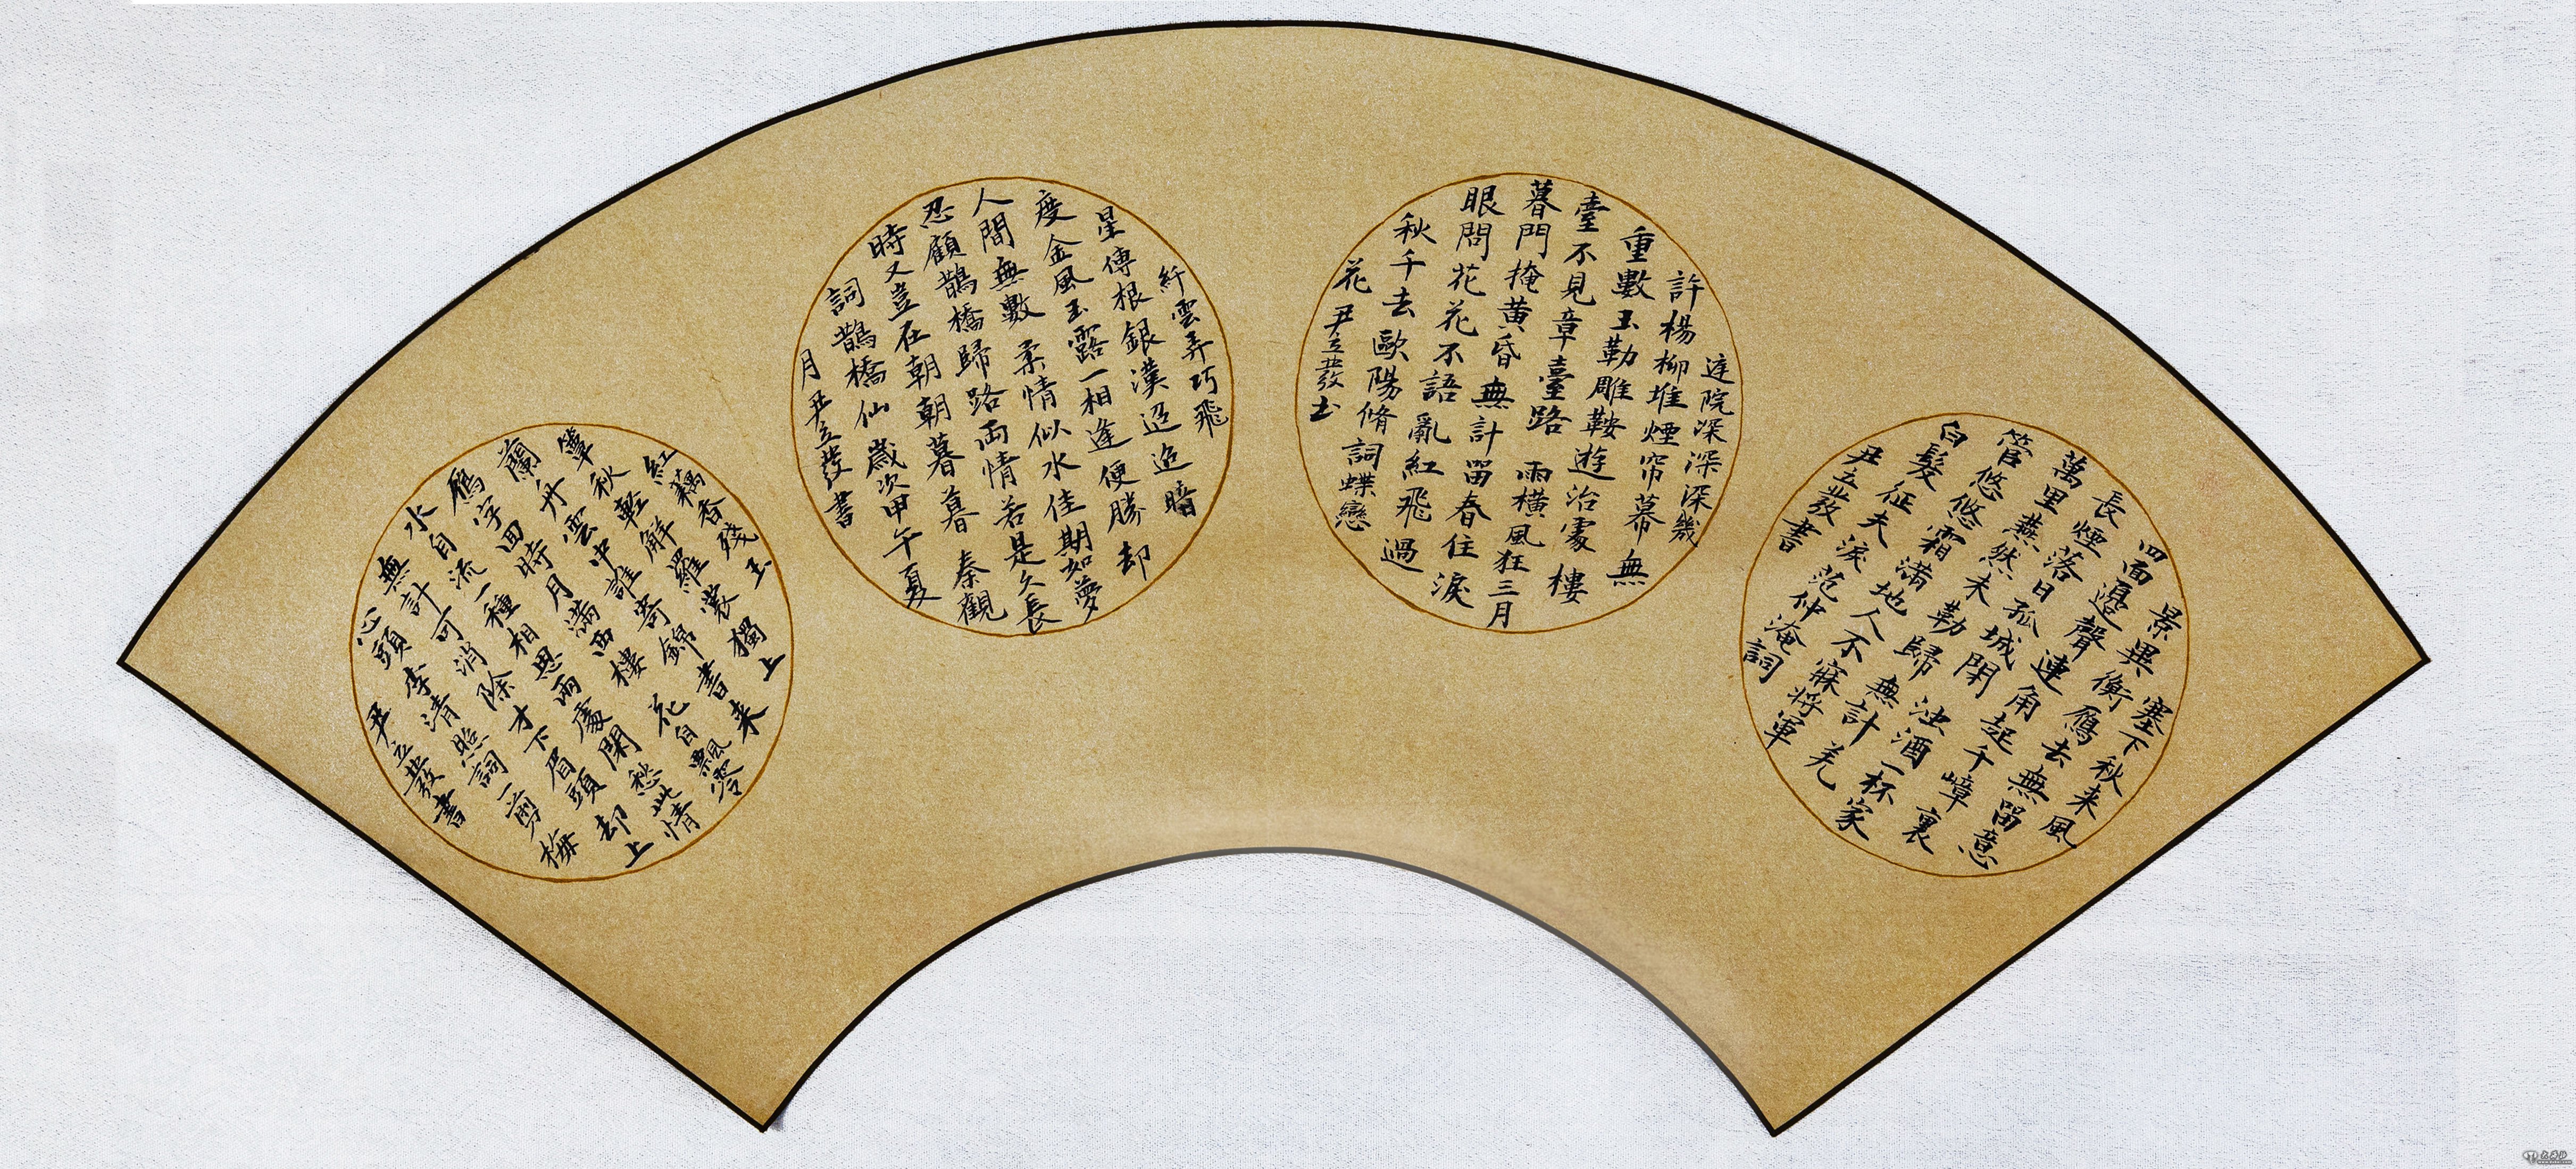 塞下秋来風
景異衡鴈去無留意
四面邊聲連角起千嶂裏
長煙落日孤城閉浊酒一杯家
萬里燕然未勒歸無計羌
管悠悠霜满地人不寐将軍
白髮征夫淚范仲淹詞
尹立發書
庭院深深深幾
許楊柳堆煙帘幕無
重數玉勒雕鞍遊冶處樓
臺不見章臺路雨横風狂三月
暮門掩黄昏無計留春住淚
眼問花花不語亂紅飛過
秋千去歐陽脩詞蝶戀
花尹立發书
纤雲弄巧飛
星傳根銀漢迢迢暗
度金風玉露一相逢便勝却
人間無數柔情似水佳期如夢
忍顧鵲橋歸路兩情若是久長
時又豈在朝朝暮暮秦觀
詞鵲橋仙歲次甲午夏
月尹立發書
紅藕香殘玉
簟秋輕解羅裳獨上
蘭舟雲中誰寄錦書来
鴈字回時月滿西樓花自飄零
水自流一種相思兩處閑愁此情
無計可消除才下眉頭却上
心頭李清照詞一剪梅
尹立發書